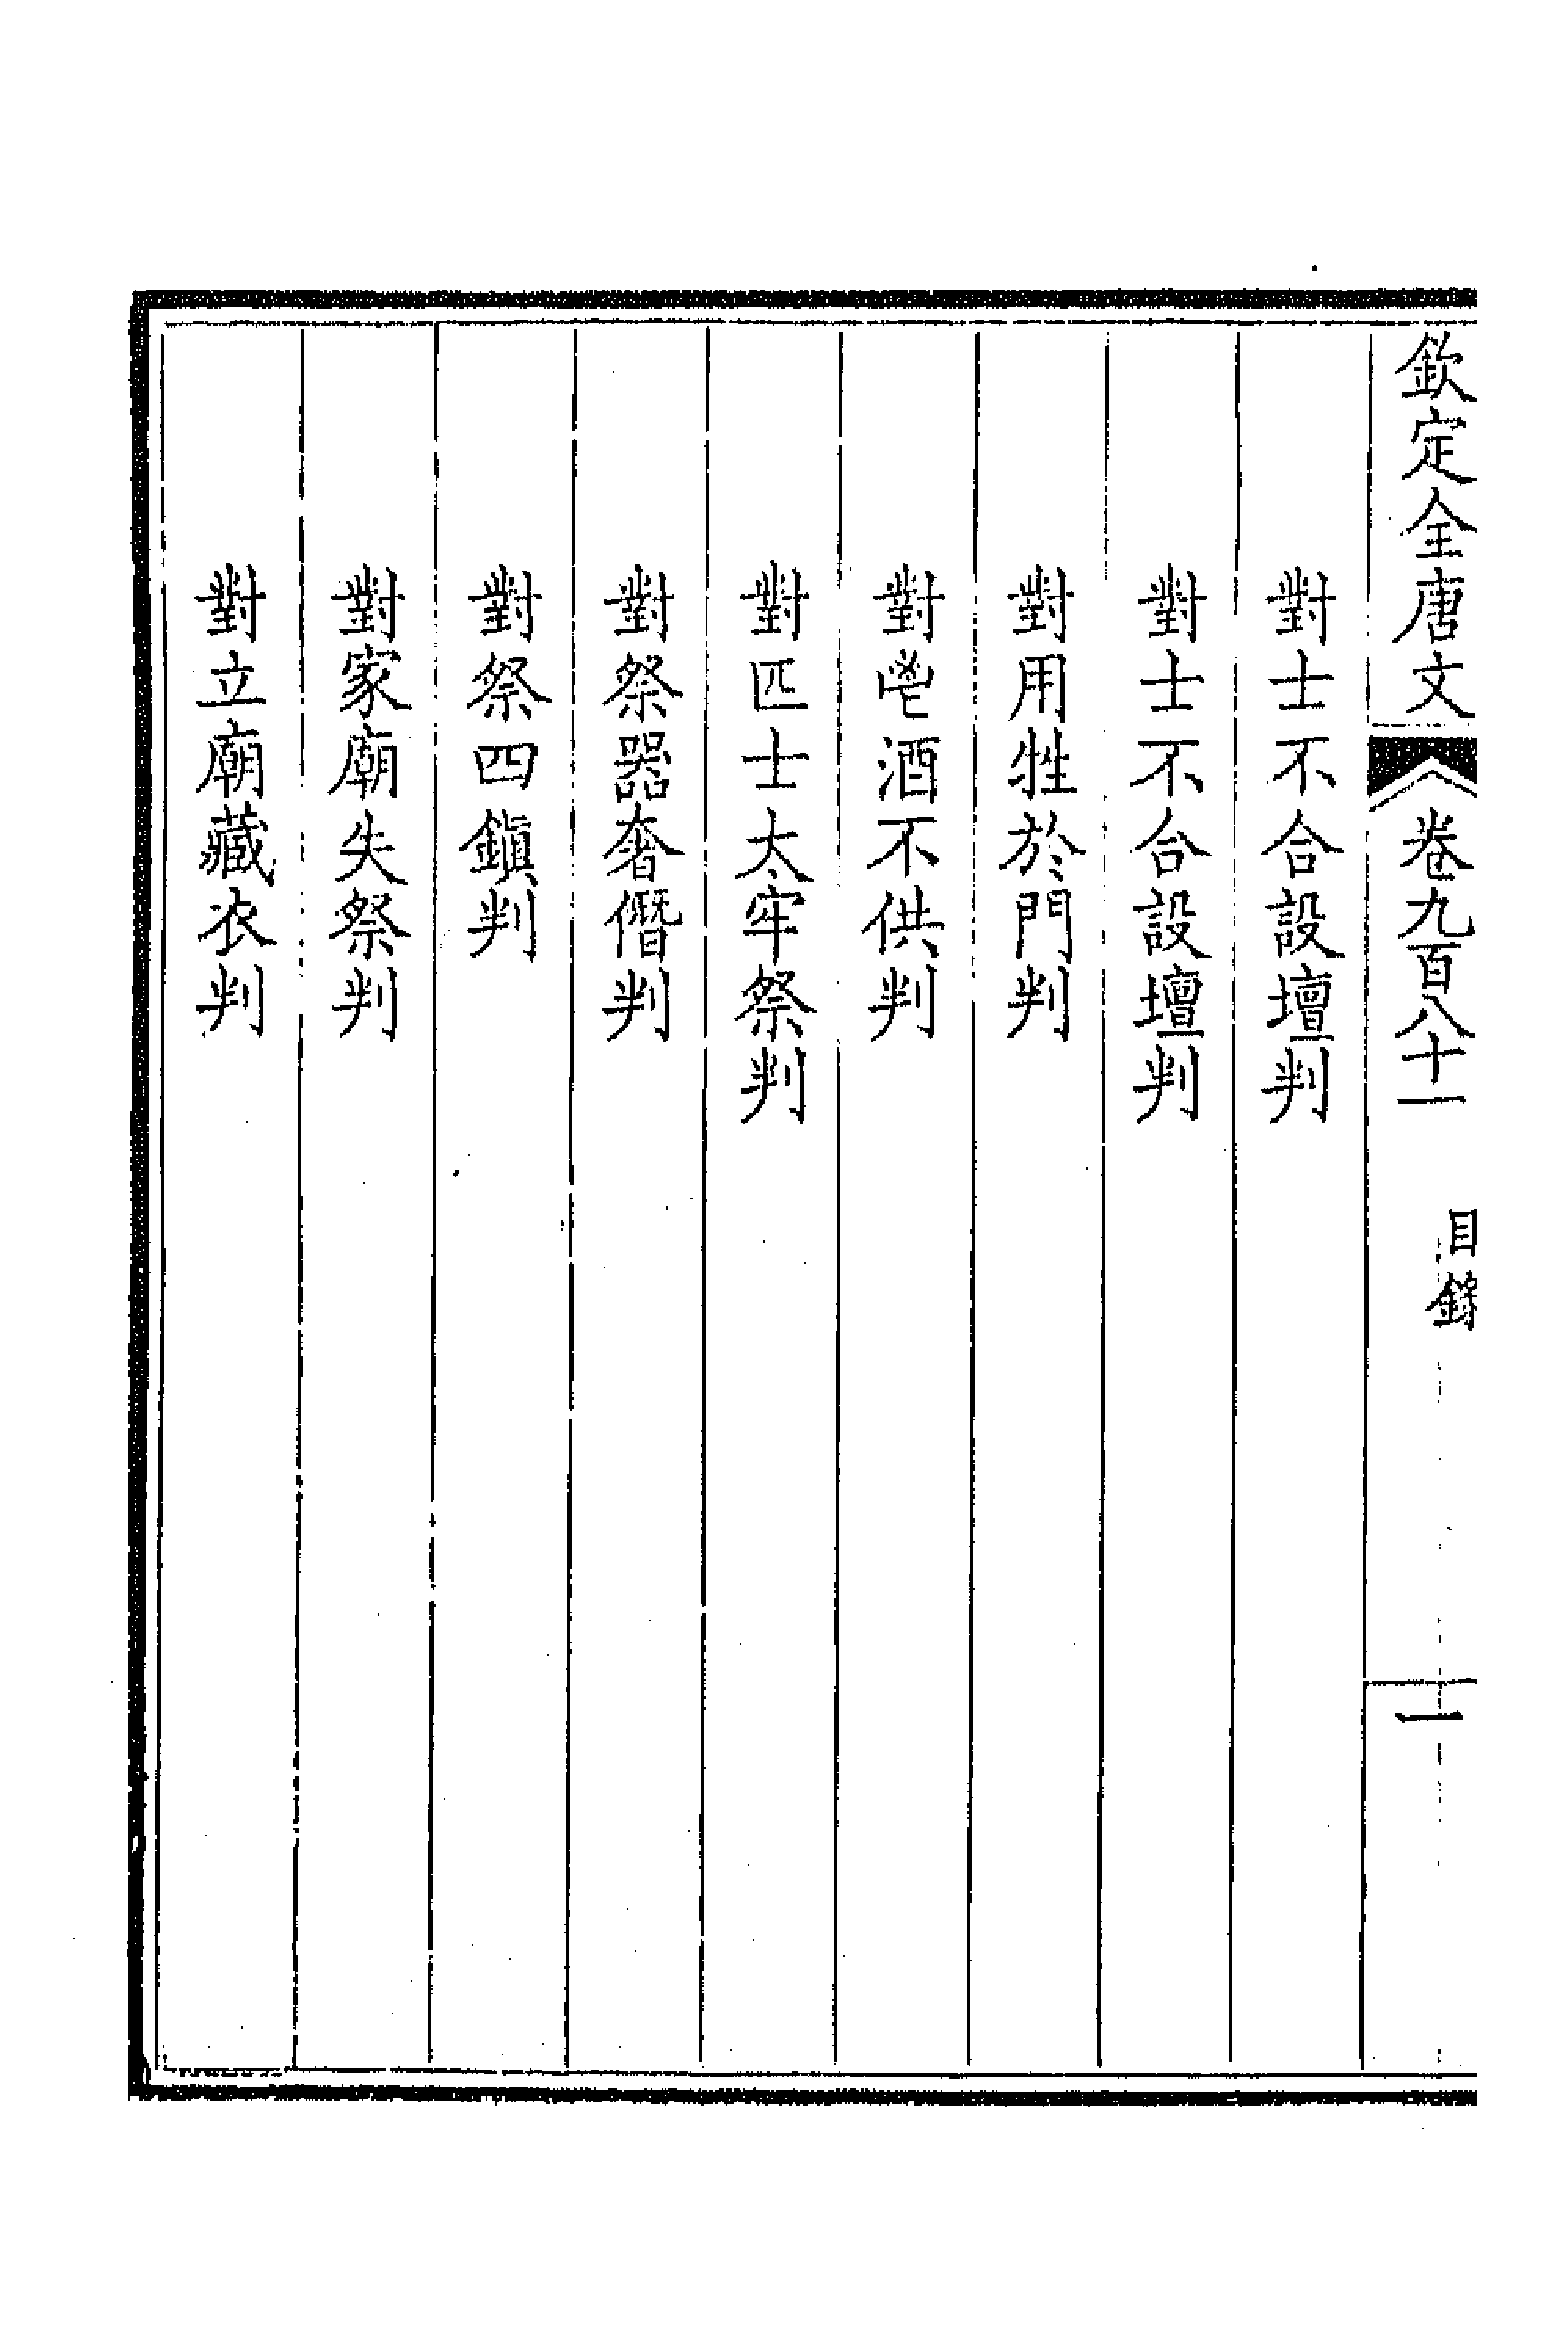 欽定全唐文 卷九百八十一 目錄 一
對士不合設壇判
對士不合設壇判
對用牲於門判
對鬯酒不供判
對匹士太牢祭判
對祭器奢僭判
對祭四鎭判
對家廟失祭判
對立廟藏衣判